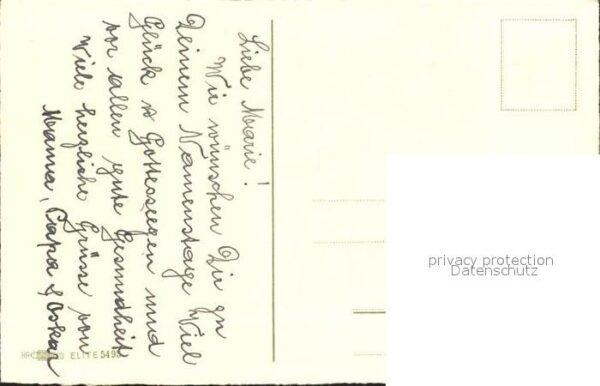 Liebe Marie!
Wir wünschen Dir zu
Deinem Namenstage Viel
Glück & Gottessegen und
vor allem gute Gesundheit
Viele herzliche Grüsse von
Mama, Papa & Oskar
ELITE 549
privacy protection
Datenschutz